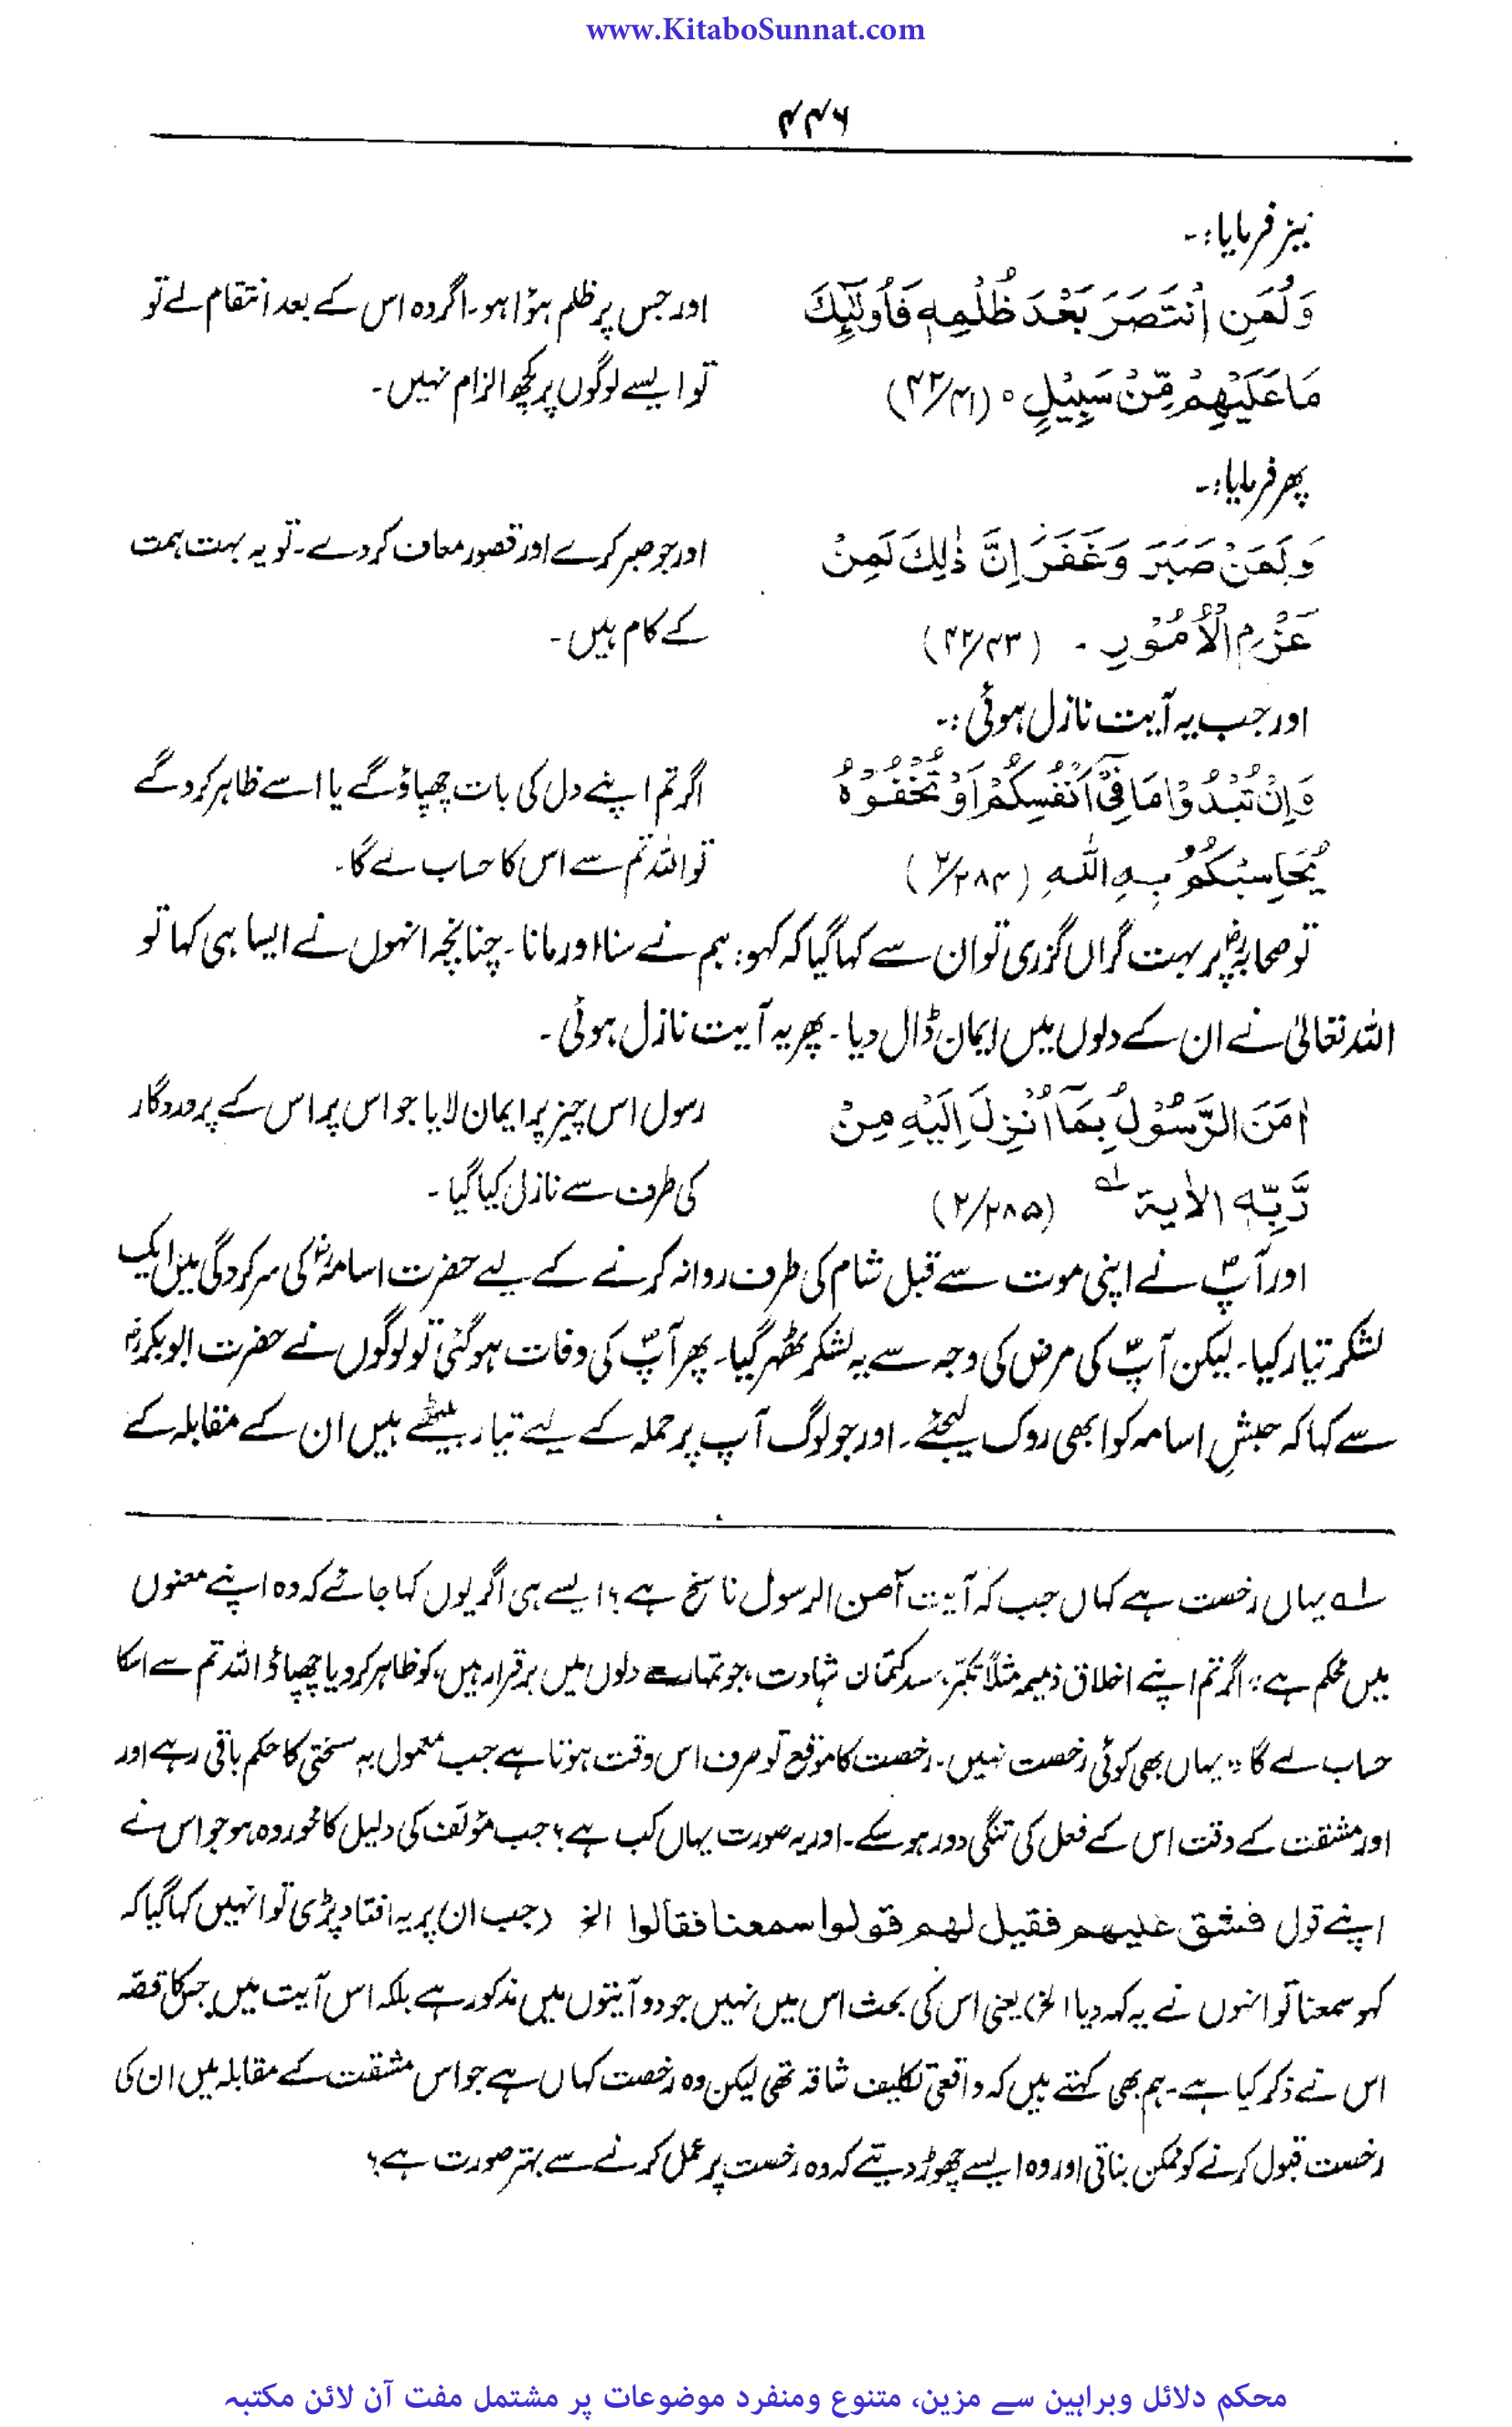 www.KitaboSunnat.com
۴۴۶
نیز فرمایا:۔
وَلَمَنِ انْتَصَرَ بَعْدَ ظُلْمِهٖ فَاُولٰٓئِكَ
مَا عَلَیْهِمْ مِّنْ سَبِیْلٍ ○ (۴۲/۴۱)
اور جس پر ظلم ہؤا ہو۔ اگر وہ اس کے بعد انتقام لے تو
تو ایسے لوگوں پر کچھ الزام نہیں۔
پھر فرمایا:۔
وَلَمَنْ صَبَرَ وَغَفَرَ اِنَّ ذٰلِكَ لَمِنْ
عَزْمِ الْاُمُوْرِ ۔ (۴۲/۴۳)
اور جو صبر کرے اور قصور معاف کر دے۔ تو یہ بہت ہمت
کے کام ہیں۔
اور جب یہ آیت نازل ہوئی:۔
وَاِنْ تُبْدُوْا مَا فِیْٓ اَنْفُسِكُمْ اَوْ تُخْفُوْهُ
یُحَاسِبْكُمْ بِهِ اللّٰهِ (۲/۲۸۴)
اگر تم اپنے دل کی بات چھپاؤ گے یا اسے ظاہر کرو گے
تو اللہ تم سے اس کا حساب لے گا۔
تو صحابہؓ پر بہت گراں گزری تو ان سے کہا گیا کہ کہو: ہم نے سنا اور مانا۔ چنانچہ انہوں نے ایسا ہی کہا تو
اللہ تعالیٰ نے ان کے دلوں میں ایمان ڈال دیا۔ پھر یہ آیت نازل ہوئی۔
اٰمَنَ الرَّسُوْلُ بِمَآ اُنْزِلَ اِلَیْهِ مِنْ
رَّبِّهٖ الاٰیة لہ (۲/۲۸۵)
رسول اس چیز پر ایمان لایا جو اس پر اس کے پروردگار
کی طرف سے نازل کیا گیا۔
اور آپؐ نے اپنی موت سے قبل شام کی طرف روانہ کرنے کے لیے حضرت اسامہؓ کی سرکردگی میں ایک
لشکر تیار کیا۔ لیکن آپؐ کی مرض کی وجہ سے یہ لشکر ٹھہر گیا۔ پھر آپؐ کی وفات ہو گئی تو لوگوں نے حضرت ابوبکرؓ
سے کہا کہ جیشِ اسامہ کو ابھی روک لیجئے۔ اور جو لوگ آپ پر حملہ کے لیے تیار بیٹھے ہیں ان کے مقابلہ کے
لہ یہاں رخصت ہے کہاں جب کہ آیت آمن الرسول ناسخ ہے؟ ایسے ہی اگر یوں کہا جائے کہ وہ اپنے معنوں
میں محکم ہے: اگر تم اپنے اخلاق ذمیمہ مثلاً تکبر، حسد کتمان شہادت، جو تمہارے دلوں میں برقرار ہیں، کو ظاہر کرو یا چھپاؤ اللہ تم سے اسکا
حساب لے گا" یہاں بھی کوئی رخصت نہیں۔ رخصت کا موقع تو صرف اس وقت ہوتا ہے جب معمول بہ سختی کا حکم باقی رہے اور
اور مشقت کے وقت اس کے فعل کی تنگی دور ہو سکے۔ اور یہ صورت یہاں کب ہے؟ جب مؤلف کی دلیل کا محور وہ ہو جو اس نے
اپنے قول فشق علیهم فقیل لهم قولوا سمعنا فقالوا الخ (جب ان پر یہ افتاد پڑی تو انہیں کہا گیا کہ
کہو سمعنا تو انہوں نے یہ کہہ دیا الخ) یعنی اس کی بحث اس میں نہیں جو دو آیتوں میں مذکور ہے بلکہ اس آیت میں جس کا قصّہ
اس نے ذکر کیا ہے۔ ہم بھی کہتے ہیں کہ واقعی تکلیف شاقہ تھی لیکن وہ رخصت کہاں ہے جو اس مشقت کے مقابلہ میں ان کی
رخصت قبول کرنے کو ممکن بناتی اور وہ ایسے چھوڑ دیتے کہ وہ رخصت پر عمل کرنے سے بہتر صورت ہے؟
محکم دلائل وبراہین سے مزین، متنوع ومنفرد موضوعات پر مشتمل مفت آن لائن مکتبہ